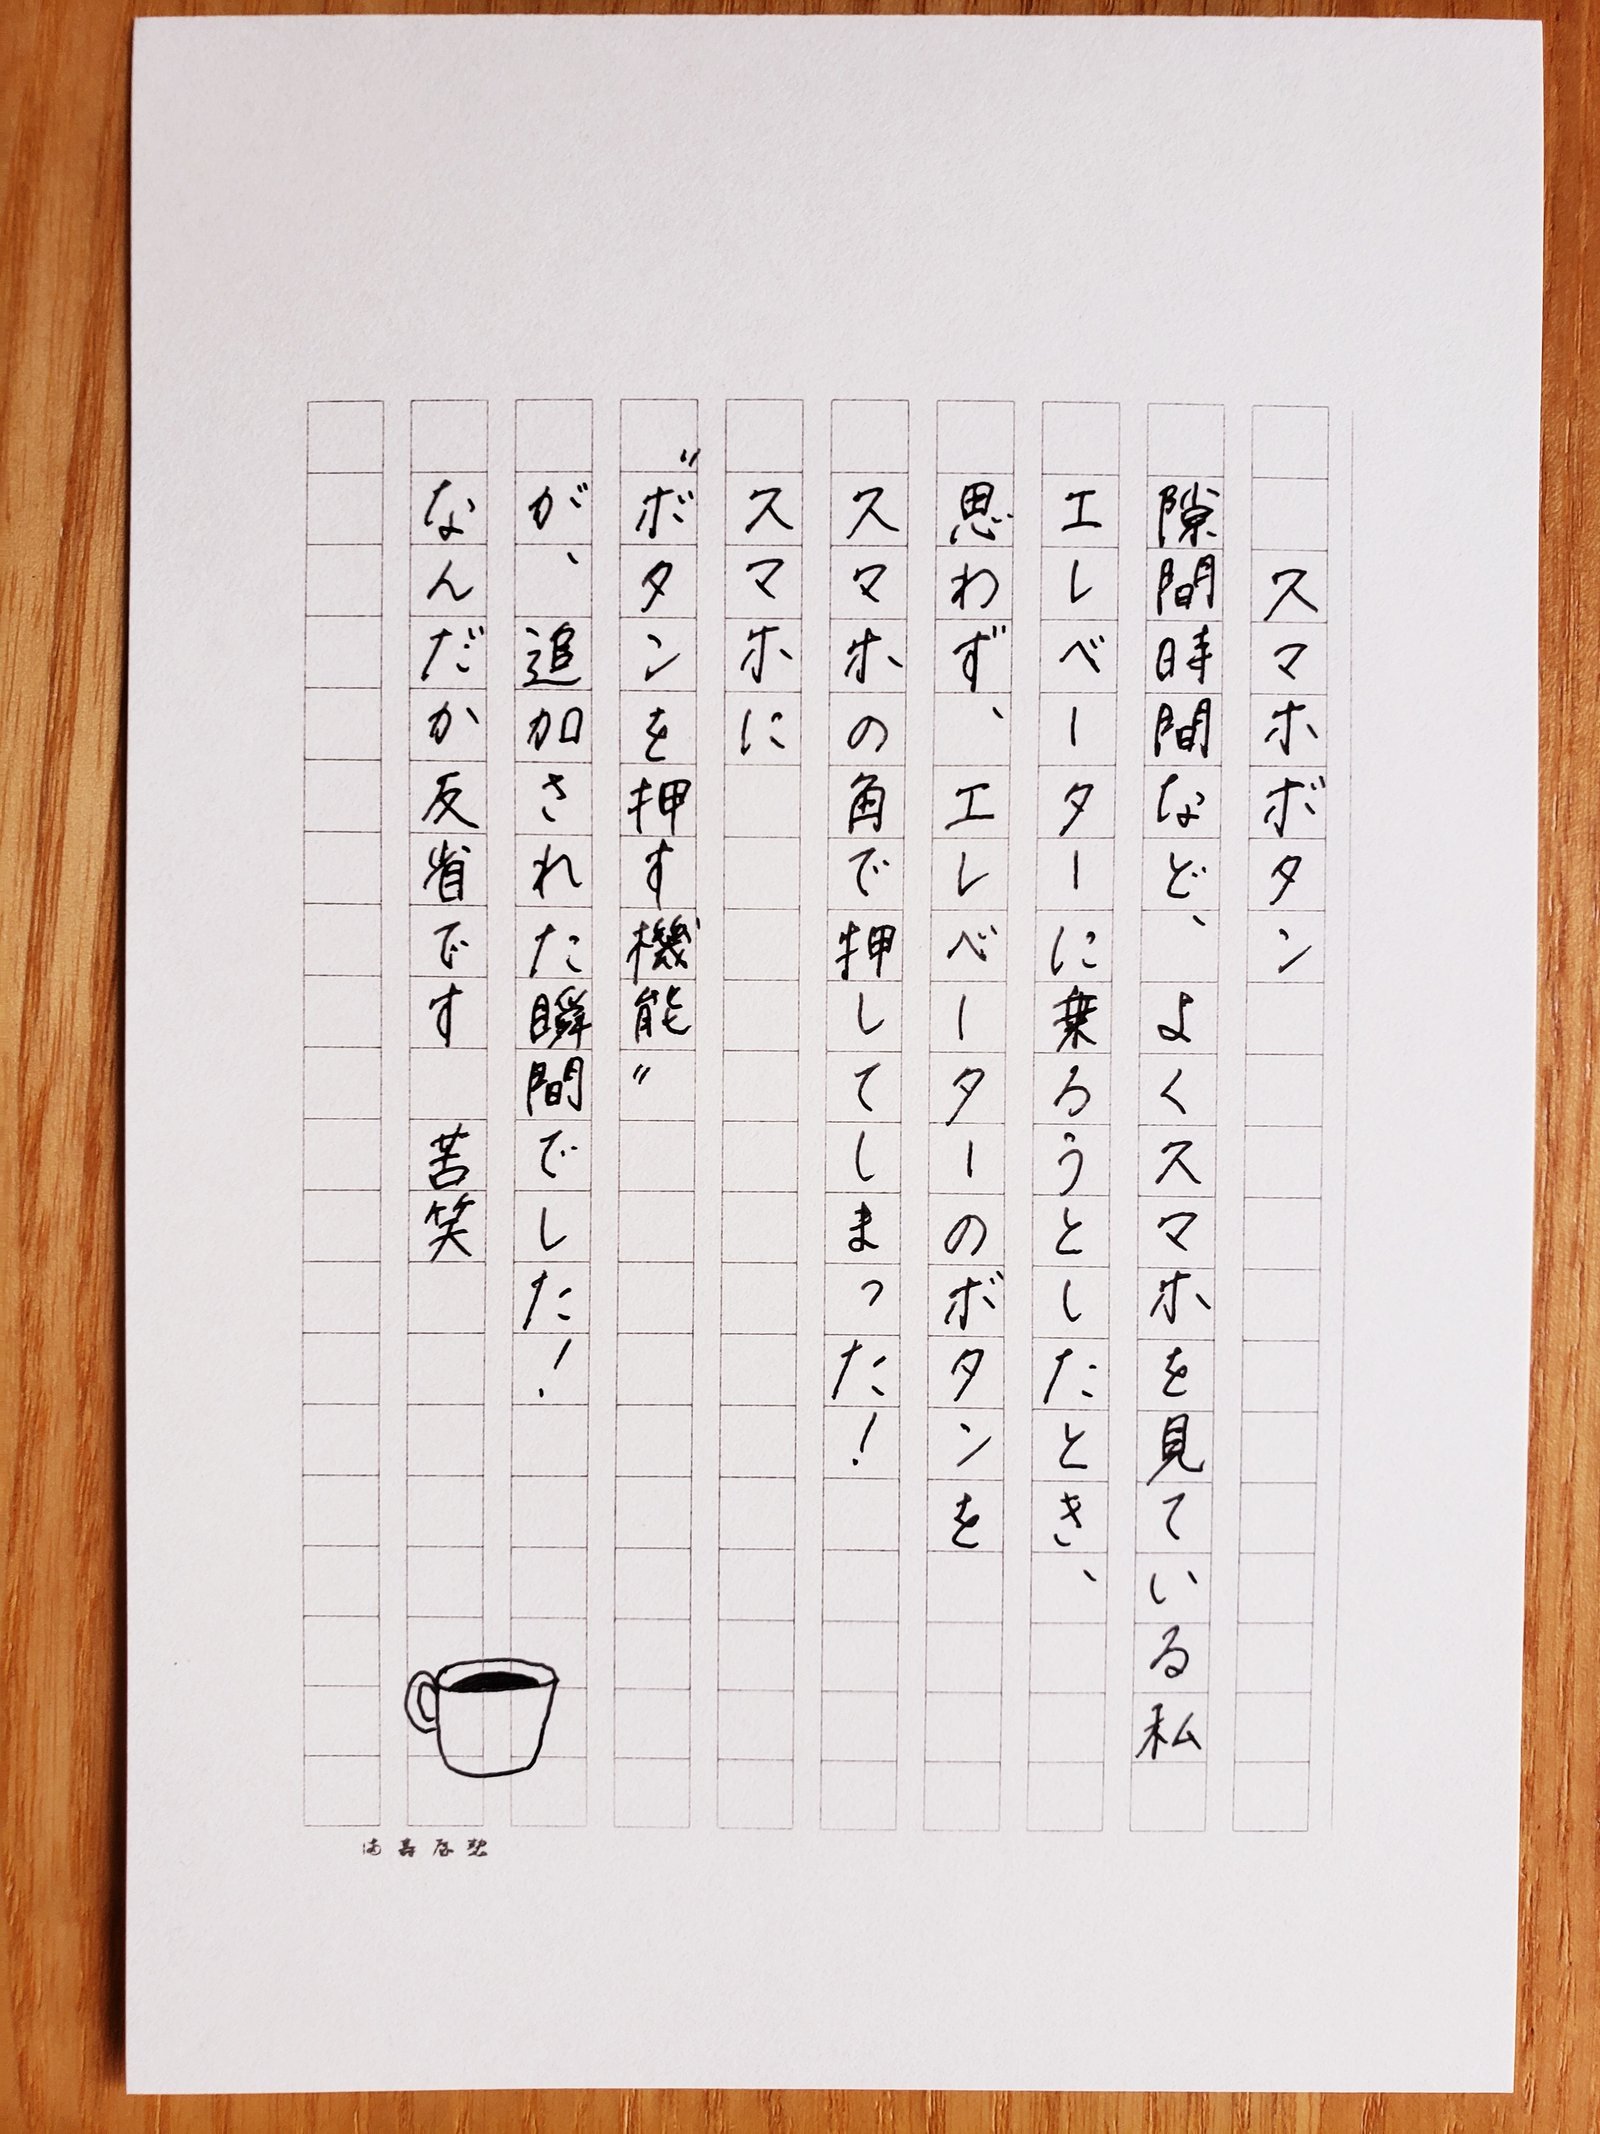 スマホボタン
隙間時間など、よくスマホを見ている私
エレベーターに乗ろうとしたとき、
思わず、エレベーターのボタンを
スマホの角で押してしまった!
スマホに
"ボタンを押す機能"
が、追加された瞬間でした!
なんだか反省です 苦笑